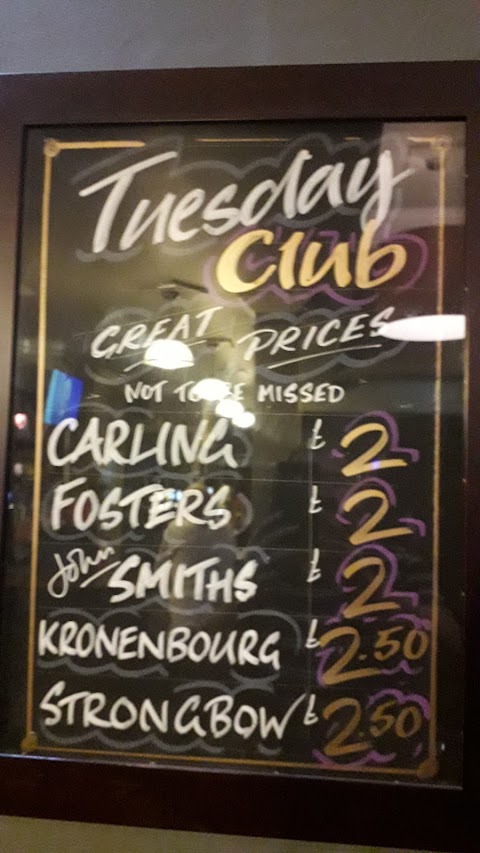 Tuesday
Club
GREAT PRICES
NOT TO BE MISSED
CARLING £ 2
FOSTERS £ 2
John SMITHS £ 2
KRONENBOURG £ 2.50
STRONGBOW £ 2.50